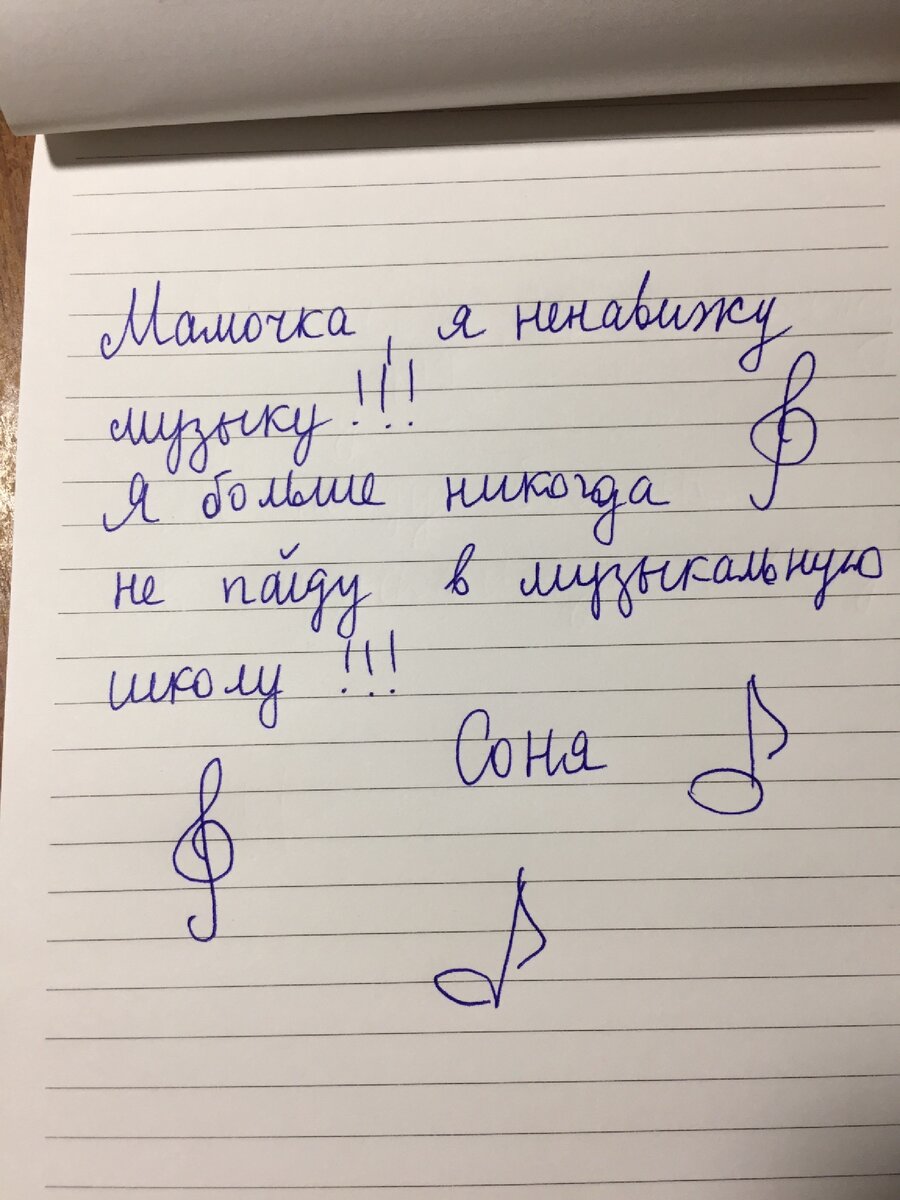 Мамочка, я ненавижу
музыку!!!
Я больше никогда
не пайду в музыкальную
школу!!!
Соня